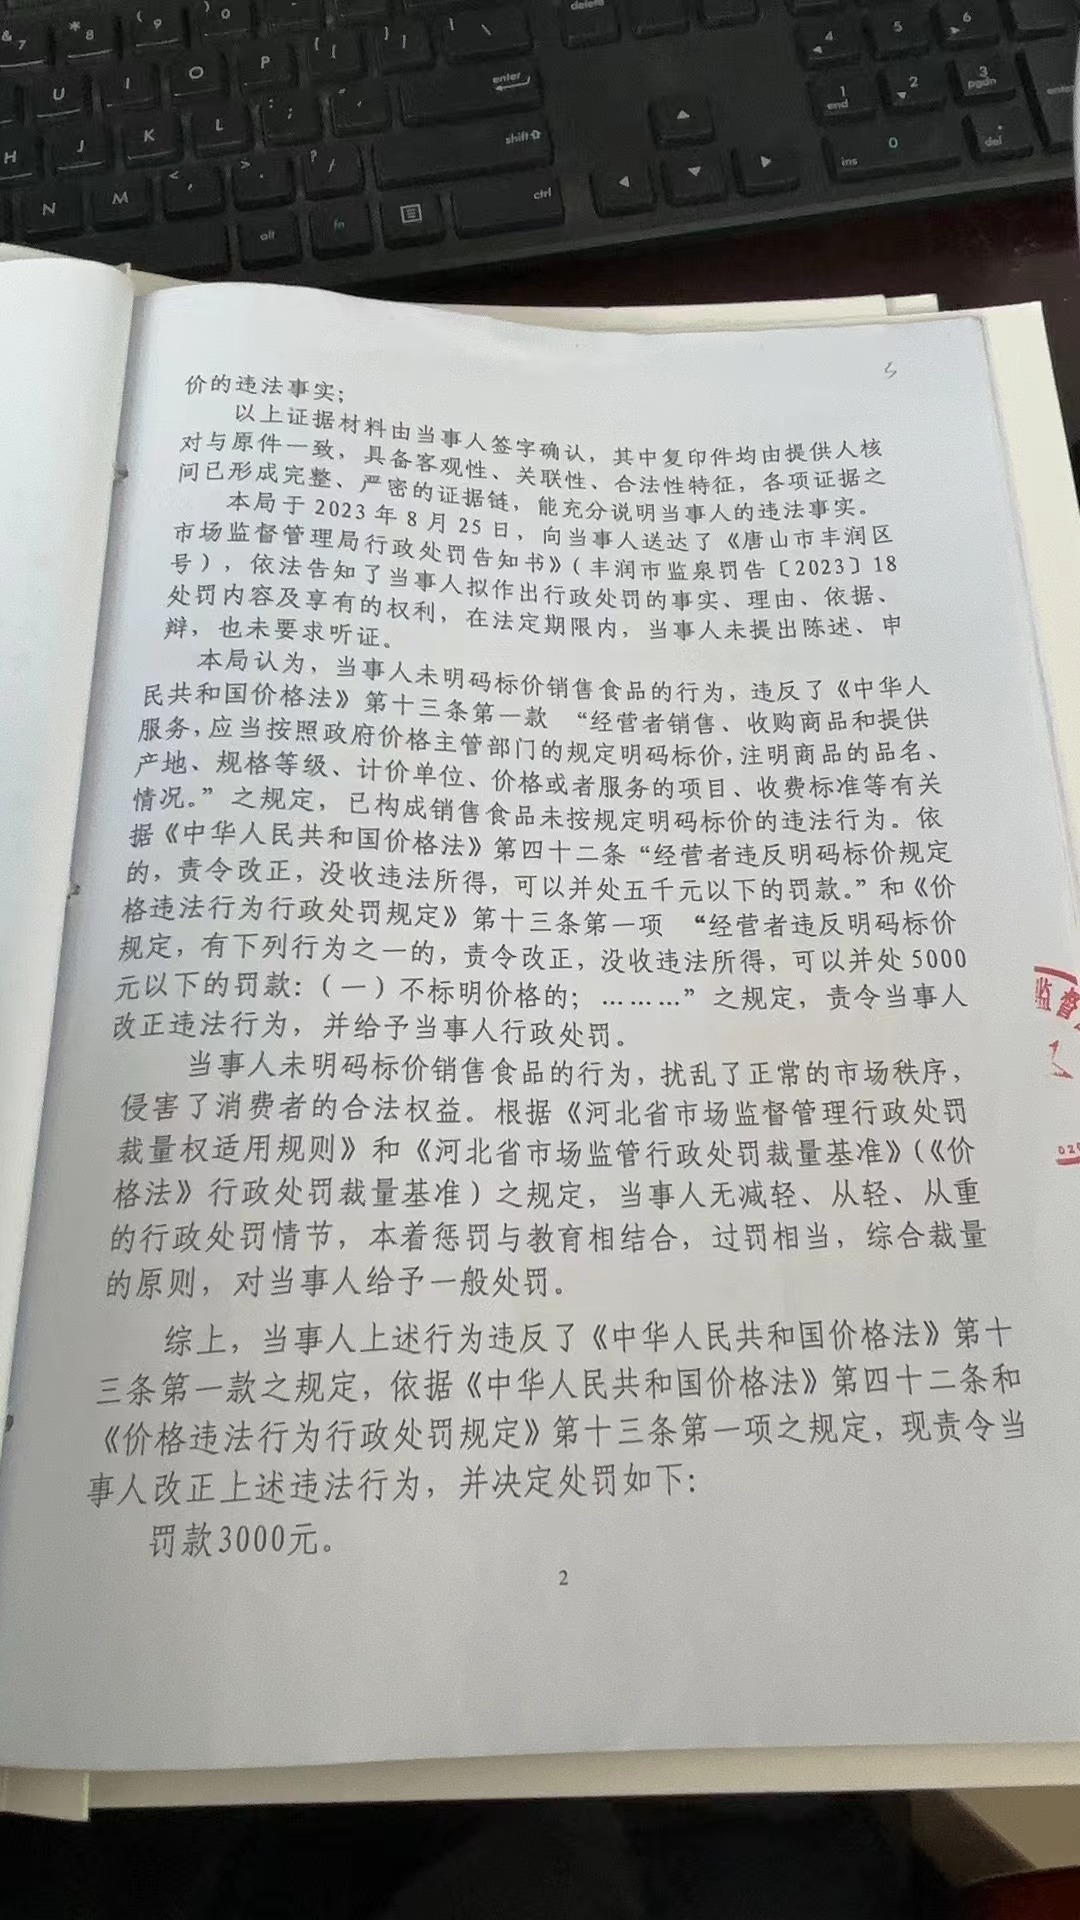 & 7
* 8
( 9
) 0
U
I
O
P
{ [
} ]
| \
delete
4
5
6
H
J
K
L
: ;
" '
enter
1 end
2
3 pgdn
enter
N
M
< ,
> .
? /
shift
ins
0
del
alt
fn
ctrl
价的违法事实；
以上证据材料由当事人签字确认，其中复印件均由提供人核
对与原件一致，具备客观性、关联性、合法性特征，各项证据之
间已形成完整、严密的证据链，能充分说明当事人的违法事实。
本局于2023年8月25日，向当事人送达了《唐山市丰润区
市场监督管理局行政处罚告知书》（丰润市监泉罚告〔2023〕18
号），依法告知了当事人拟作出行政处罚的事实、理由、依据、
处罚内容及享有的权利，在法定期限内，当事人未提出陈述、申
辩，也未要求听证。
本局认为，当事人未明码标价销售食品的行为，违反了《中华人
民共和国价格法》第十三条第一款 “经营者销售、收购商品和提供
服务，应当按照政府价格主管部门的规定明码标价，注明商品的品名、
产地、规格等级、计价单位、价格或者服务的项目、收费标准等有关
情况。”之规定，已构成销售食品未按规定明码标价的违法行为。依
据《中华人民共和国价格法》第四十二条“经营者违反明码标价规定
的，责令改正，没收违法所得，可以并处五千元以下的罚款。”和《价
格违法行为行政处罚规定》第十三条第一项 “经营者违反明码标价
规定，有下列行为之一的，责令改正，没收违法所得，可以并处5000
元以下的罚款：（一）不标明价格的；………”之规定，责令当事人
改正违法行为，并给予当事人行政处罚。
当事人未明码标价销售食品的行为，扰乱了正常的市场秩序，
侵害了消费者的合法权益。根据《河北省市场监督管理行政处罚
裁量权适用规则》和《河北省市场监管行政处罚裁量基准》（《价
格法》行政处罚裁量基准）之规定，当事人无减轻、从轻、从重
的行政处罚情节，本着惩罚与教育相结合，过罚相当，综合裁量
的原则，对当事人给予一般处罚。
综上，当事人上述行为违反了《中华人民共和国价格法》第十
三条第一款之规定，依据《中华人民共和国价格法》第四十二条和
《价格违法行为行政处罚规定》第十三条第一项之规定，现责令当
事人改正上述违法行为，并决定处罚如下：
罚款3000元。
2
监督
020